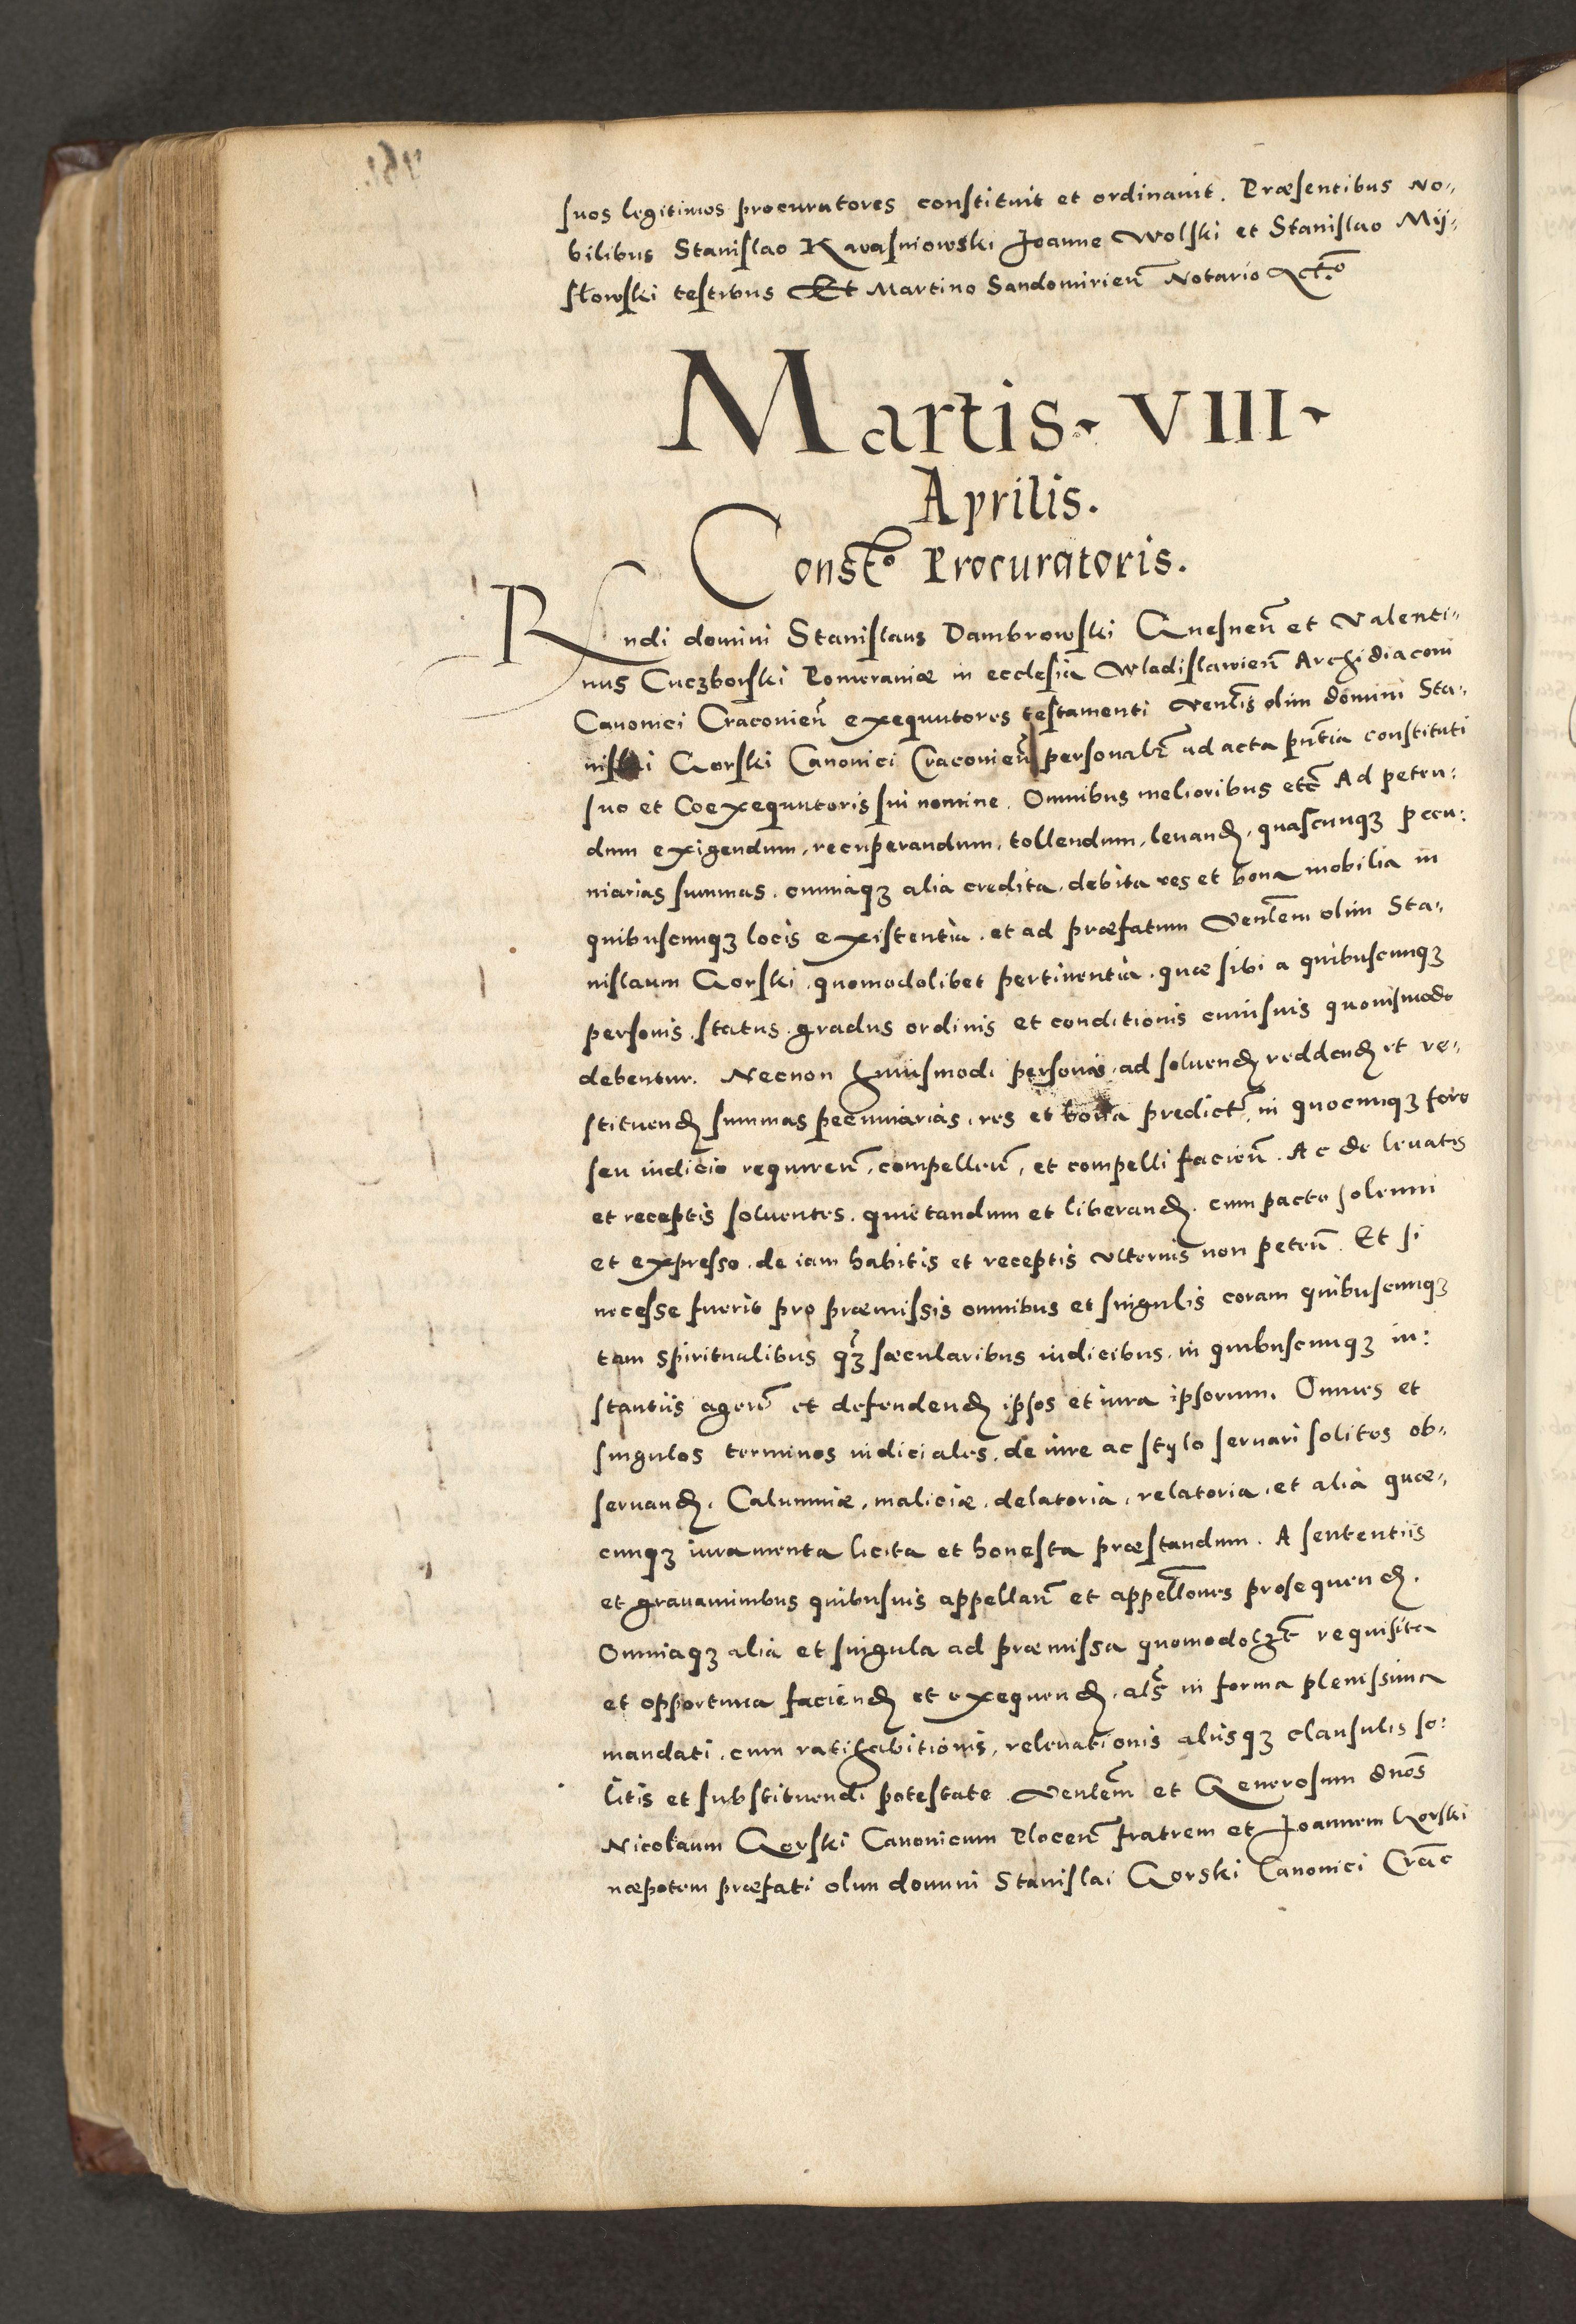 suos legitimos procuratores constituit et ordinauit. Præsentibus No„
bilibus Stanislao Kwasniowski Joanne Wolski et Stanislao Mij„
słowski testibus Et Martino Sandomirien̄ Notario Act.o
Martis. VIII.
Aprilis.
Const.o Procuratoris.
Rndi domini Stanislaus Dambrowski Gnesnen̄ et Valenti„
nus Cuczborski Pomeraniæ in ecclesia Wladislauien̄ Archidiaconi
Canonici Cracouien̄ exequutores testamenti Venlis olim domini Sta„
nislai Gorski Canonici Cracouien̄ personalr ad acta pntia constituti
suo et Coexequutoris sui nomine. Omnibus melioribus etc̄ Ad peten:
dum exigendum, recuperandum, tollendum, leuand, quascunqz pecu:
niarias summas, omniaqz alia credita, debita res et bona mobilia in
quibuscunqz locis existentia, et ad præfatum Venlem olim Sta„
nislaum Gorski, quomodolibet pertinentia, quæ sibi a quibuscunqz
personis, status, gradus ordinis et conditionis cuiusuis quouismodo
debentur. Necnon huiusmodi personas, ad soluend, reddend et re„
stituend summas pecuniarias, res et bona predict, in quocunqz foro
seu iudicio requiren̄, compellen̄, et compelli facien̄. Ac de leuatis
et receptis soluentes, quietandum et liberand, cum pacto solenni
et expresso, de iam habitis et receptis vlterius non peten̄. Et si
necesse fuerit pro præmissis omnibus et singulis coram quibuscunqz
tam spiritualibus qz sæcularibus iudicibus, in quibuscunqz in:
stantiis agen̄ et defendend ipsos et iura ipsorum. Omnes et
singulos terminos iudiciales, de iure ac stylo seruari solitos ob„
seruand. Calumniæ, maliciæ, delatoria, relatoria, et alia quæ„
cunqz iuramenta licita et honesta præstandum. A sententiis
et grauaminibus quibusuis appellan̄ et appellones prosequend.
Omniaqz alia et singula ad præmissa quomodolzt requisita
et opportuna faciend et exequend, als in forma plenissima
mandati, cum ratihabitionis, releuationis aliisqz clausulis so:
litis et substituendi potestate. Venlem et Generosum dnos
Nicolaum Gorski Canonicum Plocen̄ fratrem et Joannem Gorski
næpotem præfati olim domini Stanislai Gorski Canonici Crac